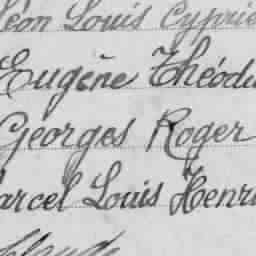 Léon Louis Cyprie
Eugène Théodu
Georges Roger
arcel Louis Henri